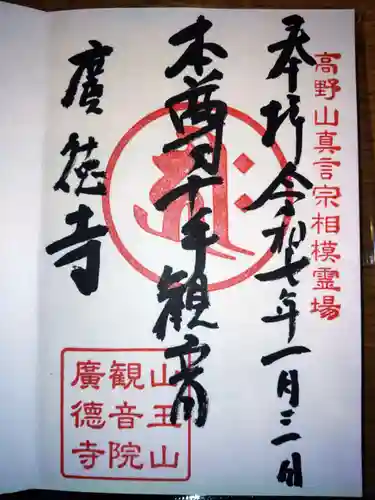 高野山真言宗相模霊場
奉拝令和七年一月三一日
本尊千手観音
廣徳寺
山王山
観音院
廣徳寺